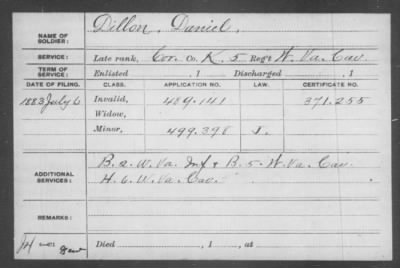 NAME OF SOLDIER: Dillon, Daniel.
SERVICE: Late rank, Cor. Co. K. 5 Reg't W. Va. Cav.
TERM OF SERVICE: Enlisted , 1 Discharged , 1
DATE OF FILING. CLASS. APPLICATION NO. LAW. CERTIFICATE NO.
1883 July 6 Invalid, 489.141 371.255
Widow,
Minor, 499.398
ADDITIONAL SERVICES: B. 2. W. Va. Inf & B. 5. W. Va. Cav.
H. 6. W. Va. Cav.
REMARKS:
Died , 1 , at